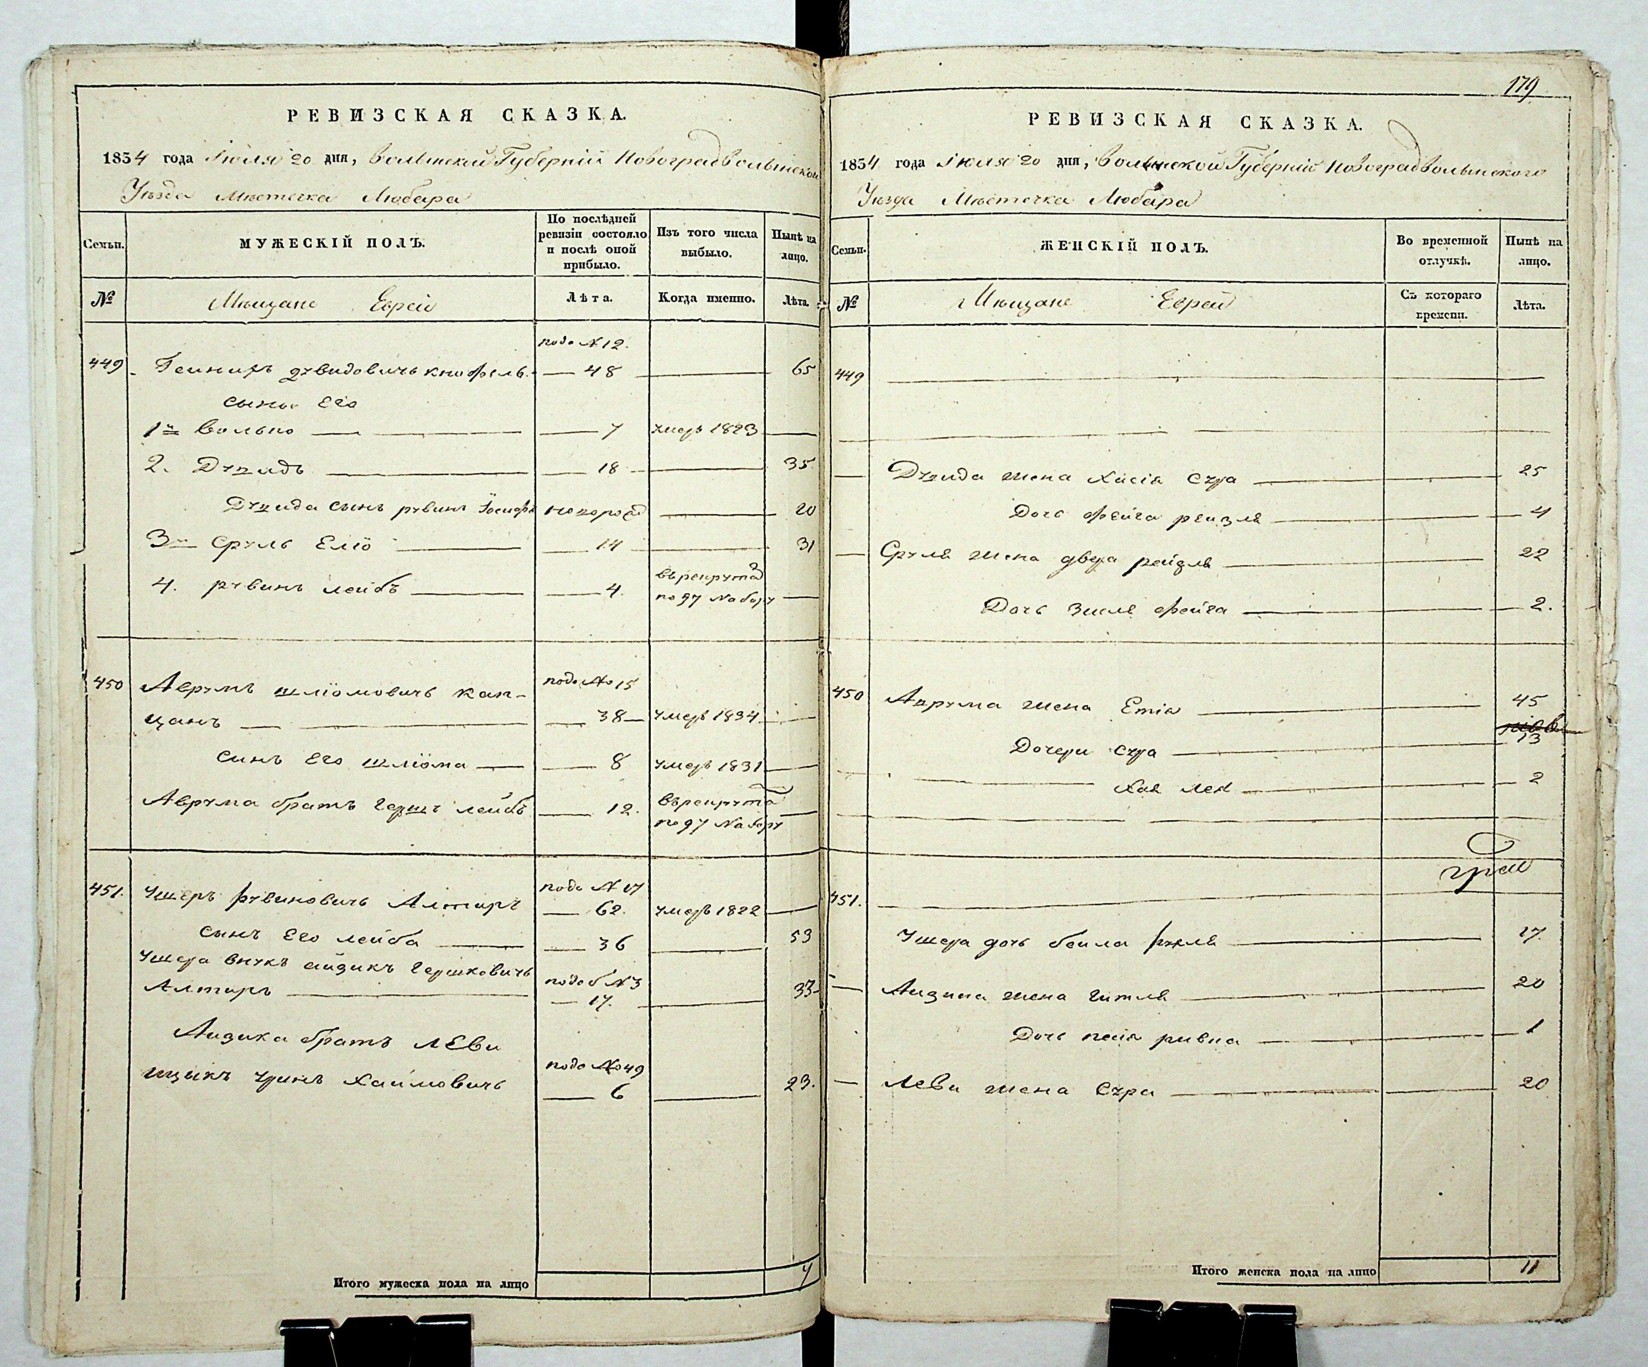 РЕВИЗСКАЯ СКАЗКА.
1854 года Іюля 20 дня, Волынской Губерній Новоградволынского
Уѣзда Мѣстечка Любара
Семьи.
МУЖЕСКІЙ ПОЛЪ.
По послѣдней ревизіи состояло и послѣ оной прибыло.
Изъ того числа выбыло.
Нынѣ на лицо.
№
Мѣщане Еврей
Лѣта.
Когда именно.
Лѣта.
подъ №12.
449 Давидовичь 48 65
сыны Его
1й Волько 7 умеръ 1823
2. Дувидъ 18 35
Дувида сынъ рувинъ 20
3й Сруль Еліо 14 31
4. рувинъ лейбъ 4. въ рекруты
по 97 Набору
подъ №15
450 Аврумъ шліомовичь кап-
цанъ 38 умеръ 1834
сынъ Его шліома 8 умеръ 1831
Аврума братъ Гершъ лейбъ 12. въ рекруты
по 97 Набору
подъ №17
451. Ушеръ рувиновичь Алтаръ 62. умеръ 1822
сынъ Его лейба 36 53
Ушера внукъ айзикъ Гершковичь подъ б №3
Алтаръ 17. 33
Аизика братъ Леви
подъ №49
ицыкъ Хаимовичь 6 23.
Итого мужеска пола на лицо 7
179
РЕВИЗСКАЯ СКАЗКА.
1854 года Іюля 20 дня, Волынской Губерній Новоградволынского
Уѣзда Мѣстечка Любара
Семьи.
ЖЕНСКІЙ ПОЛЪ.
Во временной отлучкѣ.
Нынѣ на лицо.
№
Мѣщане Еврей
Съ котораго времени.
Лѣта.
449
Дувида жена Хасія Сура 25
Дочь фейга рейзля 4
Сруля жена двера рейзля 22
Дочь Зисля фейга 2.
450 Аврума жена Етія 45
Дочери Сура 13
Хая лея 2
451.
Ушера дочь бейла рухля 17.
Аизика жена Гитля 20
Дочь песія ривка 1
Леви жена Сура 20
Итого женска пола на лицо 11